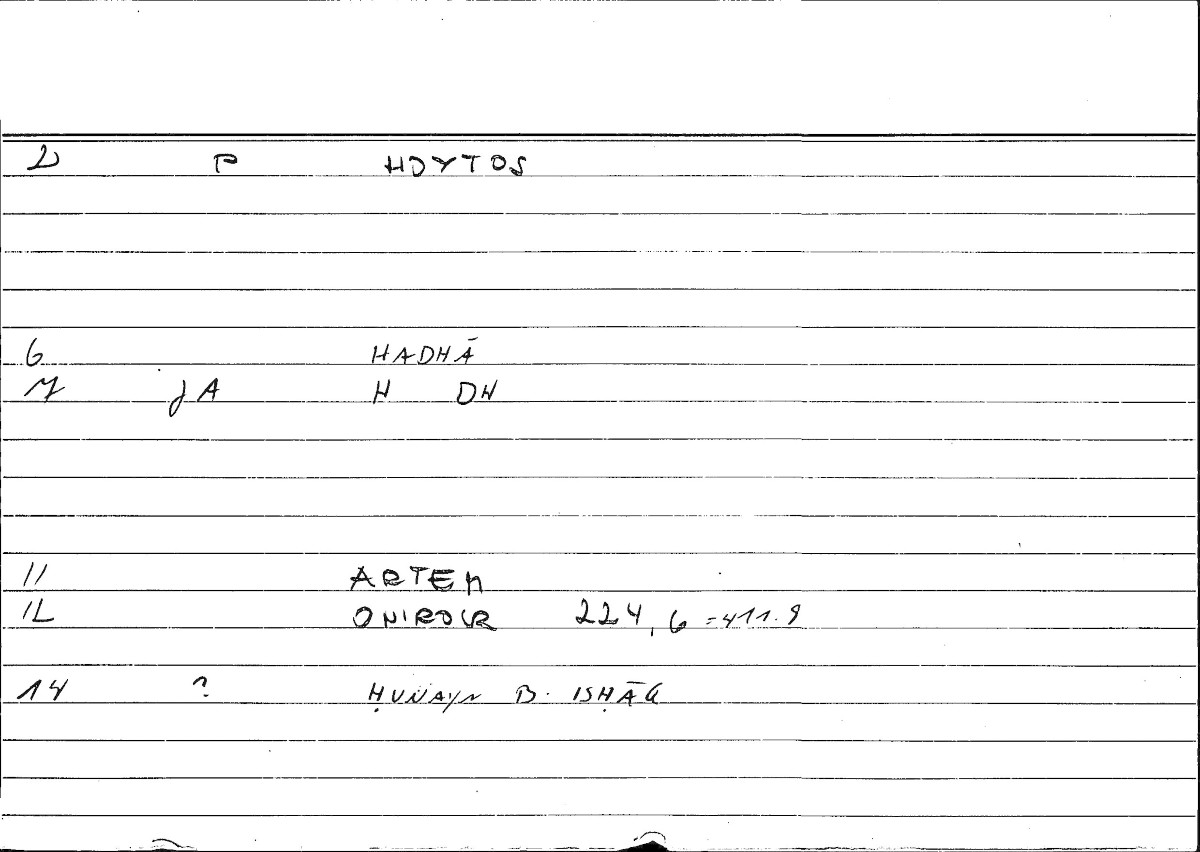 2 P HDYTOS
6 HADHĀ
7 JA H DH
11 ARTEM
12 ONIROCR 224, 6 = 411.9
14 ? ḤUNAYN B. ISḤĀQ